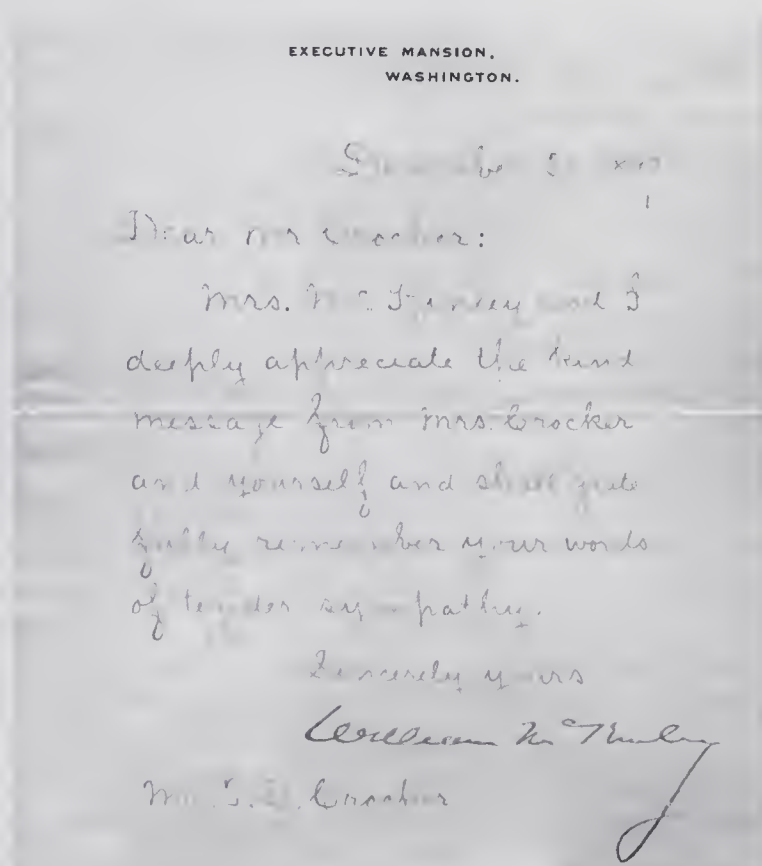 EXECUTIVE MANSION,
WASHINGTON.
December
Dear Mr Crocker:
Mrs. McKinley and I
deeply appreciate the kind
message from Mrs. Crocker
and yourself and shall grate
fully remember your words
of tender sympathy.
Sincerely yours
William McKinley
Mr. Crocker